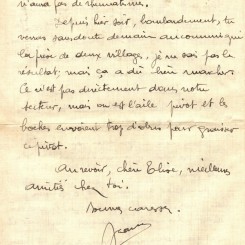 n'aura pas de rhumatisme.
Depuis hier soir, bombardement, tu
verras sans doute demain au communiqué
la prise de deux villages, je ne sais pas le
résultat; mais ça a dû bien marcher.
Ce n'est pas directement dans notre
secteur, mais on est l'aile pivot et les
boches envoient trop d'obus pour graisser
ce pivot.
Au revoir, chère Elise, meilleures
amitiés chez toi.
Bonnes caresses.
Jean